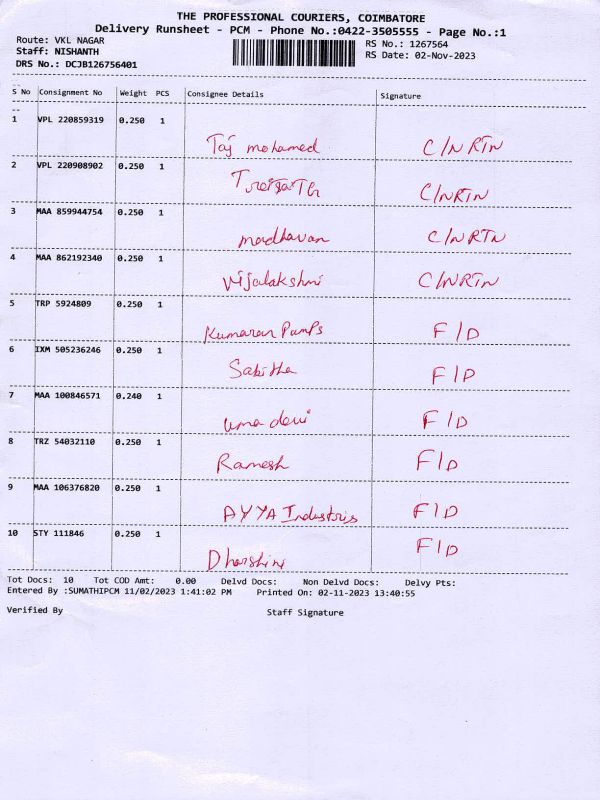 THE PROFESSIONAL COURIERS, COIMBATORE
Delivery Runsheet - PCM - Phone No.:0422-3505555 - Page No.:1
Route: VKL NAGAR RS No.: 1267564
Staff: NISHANTH RS Date: 02-Nov-2023
DRS No.: DCJB126756401
S No Consignment No Weight PCS Consignee Details Signature
1 VPL 220859319 0.250 1
Taj mohamed C/NRTN
2 VPL 220908902 0.250 1
C/NRTN
3 MAA 859944754 0.250 1
madhavan C/NRTN
4 MAA 862192340 0.250 1
Vijalakshmi C/NRTN
5 TRP 5924809 0.250 1
Kumaran Pumps F/D
6 IXM 505236246 0.250 1
Sabitha F/D
7 MAA 100846571 0.240 1
uma devi F/D
8 TRZ 54032110 0.250 1
Ramesh F/D
9 MAA 106376820 0.250 1
AYYA Industris F/D
10 STY 111846 0.250 1
Dharshini F/D
Tot Docs: 10 Tot COD Amt: 0.00 Delvd Docs: Non Delvd Docs: Delvy Pts:
Entered By :SUMATHIPCM 11/02/2023 1:41:02 PM Printed On: 02-11-2023 13:40:55
Verified By Staff Signature